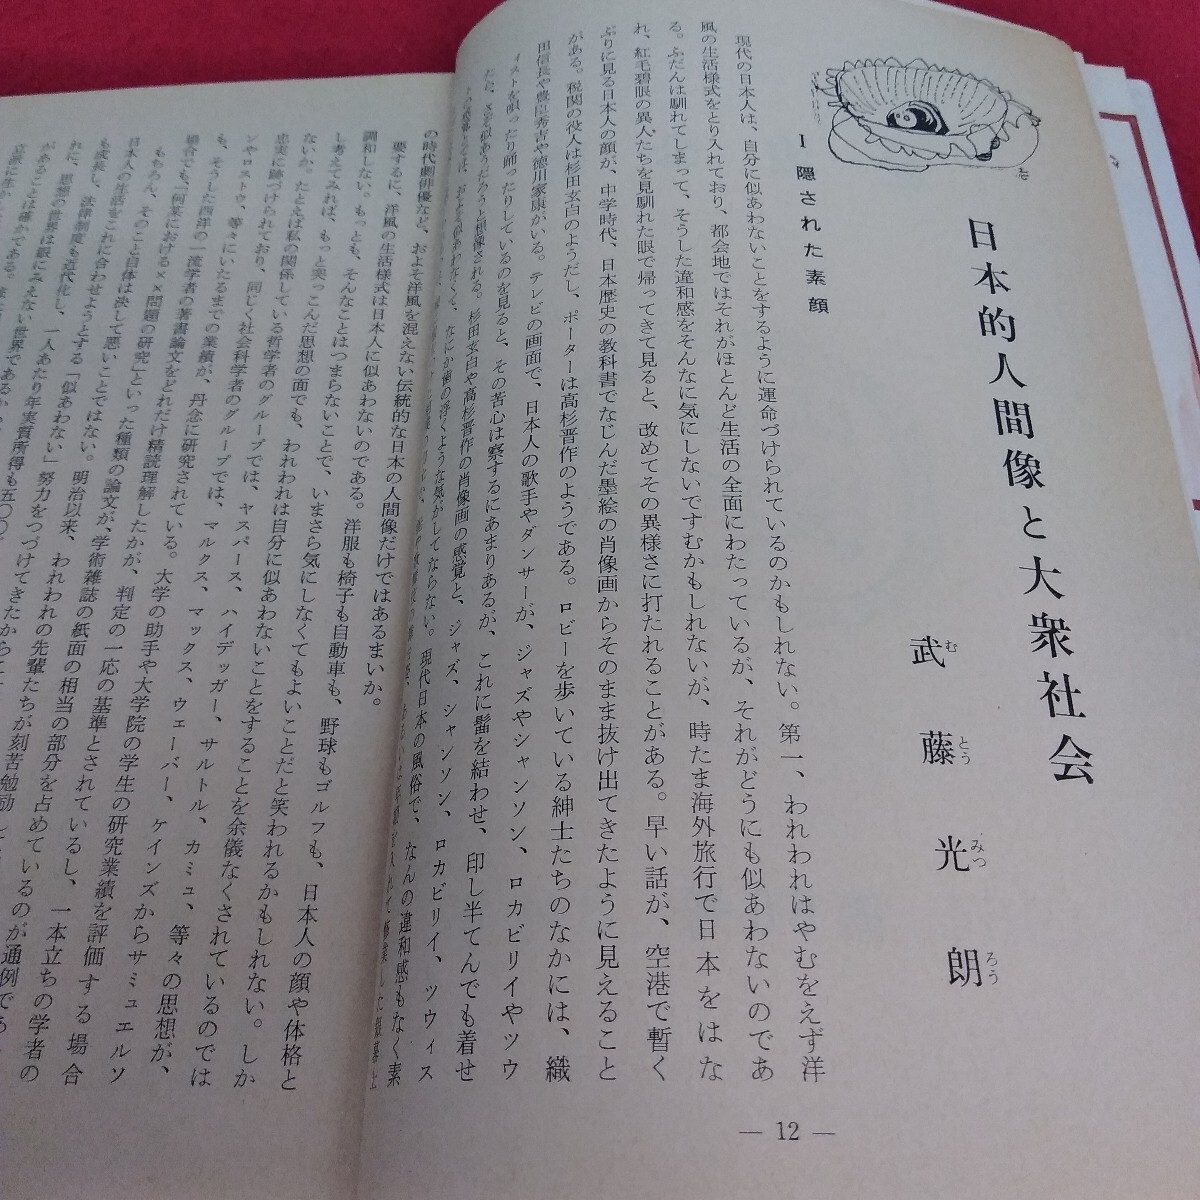 日本的人間像と大衆社会
武藤光朗
むとうみつろう
I 隠された素顔
現代の日本人は、自分に似あわないことをするように運命づけられているのかもしれない。第一、われわれはやむをえず洋
風の生活様式をとり入れており、都会地ではそれがほとんど生活の全面にわたっているが、それがどうにも似あわないのであ
る。ふだんは馴れてしまって、そうした違和感をそんなに気にしないですむかもしれないが、時たま海外旅行で日本をはな
れ、紅毛碧眼の異人たちを見馴れた眼で帰ってきて見ると、改めてその異様さに打たれることがある。早い話が、空港で暫く
ぶりに見る日本人の顔が、中学時代、日本歴史の教科書でなじんだ墨絵の肖像画からそのまま抜け出てきたように見えること
がある。税関の役人は杉田玄白のようだし、ポーターは高杉晋作のようである。ロビーを歩いている紳士たちのなかには、織
田信長や豊臣秀吉や徳川家康がいる。テレビの画面で、日本人の歌手やダンサーが、ジャズやシャンソン、ロカビリイやツウ
ィストを唄ったり踊ったりしているのを見ると、その苦心は察するにあまりあるが、これに髷を結わせ、印し半てんでも着せ
たら、さぞ似あうだろうと想像される。杉田玄白や高杉晋作の肖像画の感覚と、ジャズ、シャンソン、ロカビリイ、ツウィス
なにか歯の浮くような気がしてならない。現代日本の風俗で、なんの違和感もなく素
の時代劇俳優など、およそ洋風を混えない伝統的な日本の人間像だけではあるまいか。
要するに、洋風の生活様式は日本人に似あわないのである。洋服も椅子も自動車も、野球もゴルフも、日本人の顔や体格と
調和しない。もっとも、そんなことはつまらないことで、いまさら気にしなくてもよいことだと笑われるかもしれない。しか
し考えてみれば、もっと突っこんだ思想の面でも、われわれは自分に似あわないことをすることを余儀なくされているのでは
ないか。たとえば私の関係している哲学者のグループでは、ヤスパース、ハイデッガー、サルトル、カミュ、等々の思想が、
忠実に跡づけられており、同じく社会科学者のグループでは、マルクス、マックス、ウェーバー、ケインズからサミュエルソ
ンやロストウ、等々にいたるまでの業績が、丹念に研究されている。大学の助手や大学院の学生の研究業績を評価する場合
も、そうした西洋の一流学者の著書論文をどれだけ精読理解したかが、判定の一応の基準とされているし、一本立ちの学者の
場合でも、「何某における××問題の研究」といった種類の論文が、学術雑誌の紙面の相当の部分を占めているのが通例であ
もちろん、そのこと自体は決して悪いことではない。明治以来、われわれの先輩たちが刻苦勉励し
日本人の生活をこれに合わせようとする「似あわない」努力をつづけてきたからこ
も成長し、法律制度も近代化し、一人あたり年実質所得も五〇〇
れに、思想の世界は眼にみえない世界であるか
があることは確かである。
— 12 —